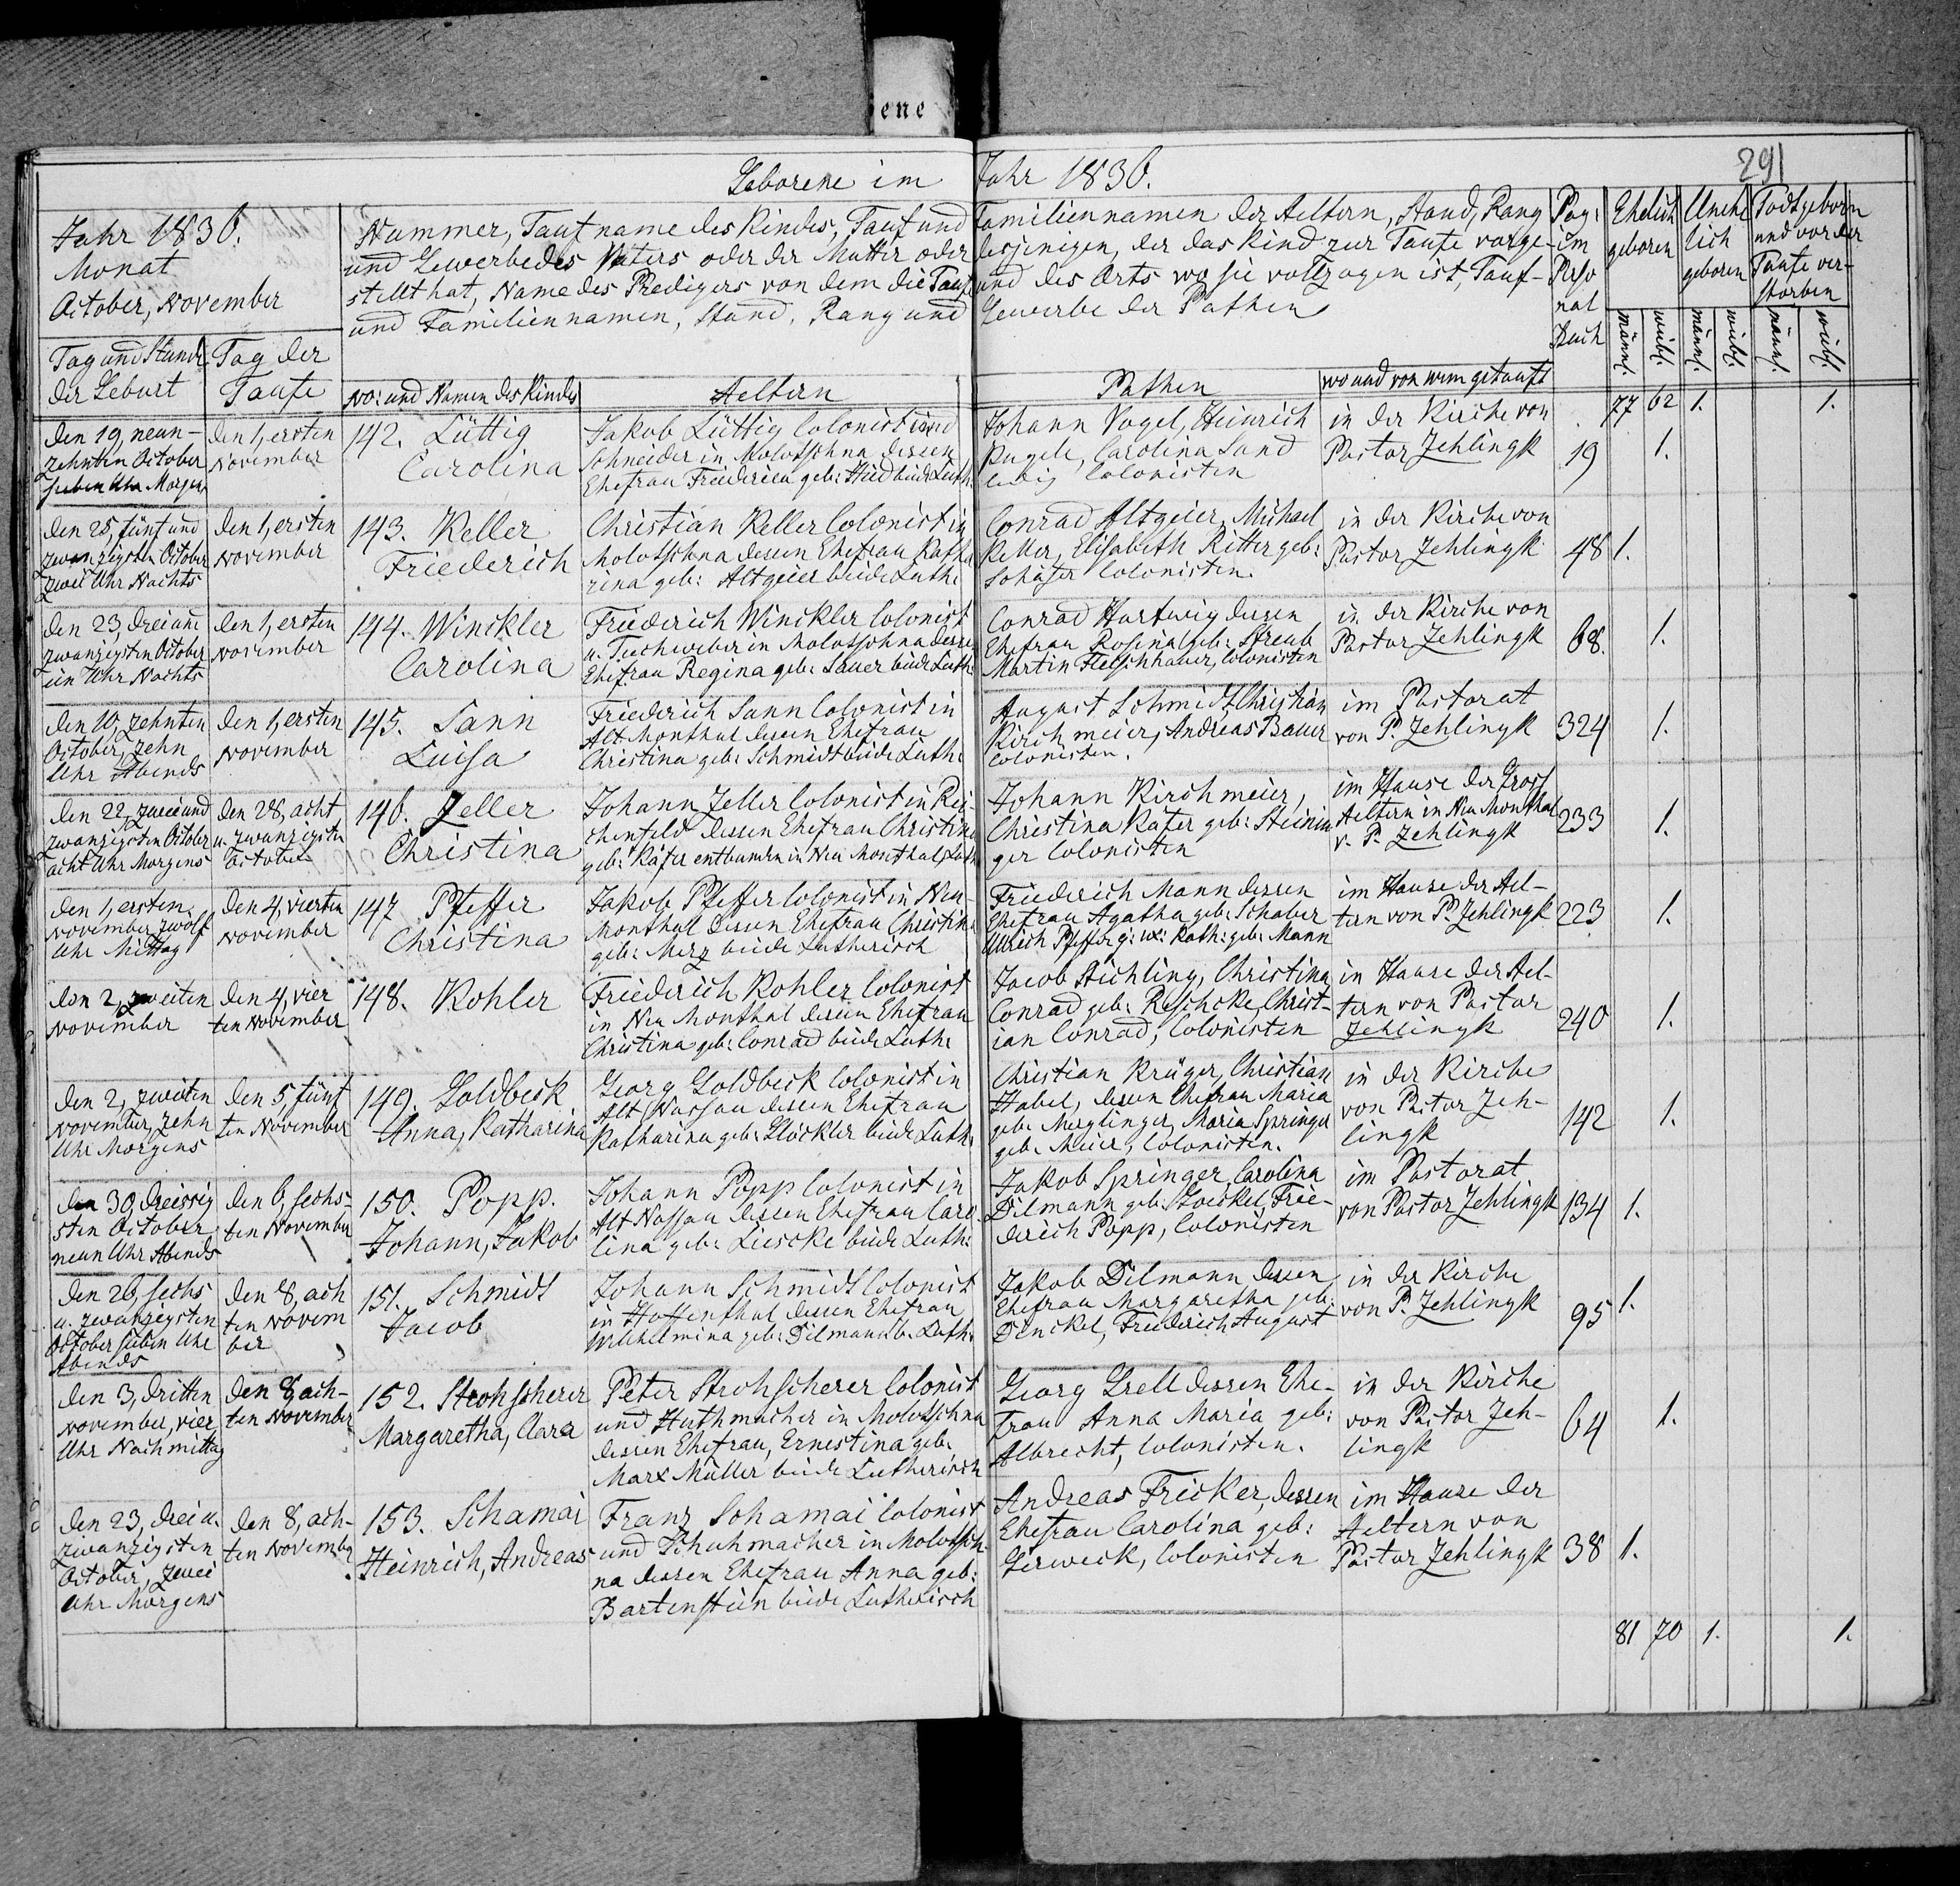 ene
Geborene im Jahr 1836.
291
Jahr 1836.
Monat
October, November
Nummer, Taufname des Kindes, Tauf und Familiennamen der Aeltern, Stand, Rang
und Gewerbe des Vaters oder der Mutter oder desjenigen, der das Kind zur Taufe vorge-
stellt hat, Name des Predigers von dem die Taufe und des Orts wo sie vollzogen ist, Tauf-
und Familiennamen, Stand, Rang und Gewerbe der Pathen
Pag:
im
Perso
nal
Buch
Ehelich
geboren
Unehe
lich
geboren
Todtgeborn
und vor der
Taufe ver-
storben
männl. weibl. männl. weibl. männl. weibl.
Tag und Stunde
der Geburt
Tag der
Taufe
No: und Namen des Kindes
Aeltern
Pathen
wo und von wem getauft
77 62 1. 1.
den 19, neun-
zehnten October
sieben Uhr Morgens
den 1, ersten
November
142. Lüttig
Carolina
Jakob Lüttig Colonist und
Schneider in Molotschna dessen
Ehefrau Friederica geb: beide Luth:
Johann Vogel, Heinrich
Kugele, Carolina Sand
ledig Colonisten
in der Kirche von
Pastor Zehlingk
19 1.
den 25, fünf und
zwanzigsten October
zwei Uhr Nachts
den 1, ersten
November
143. Keller
Friederich
Christian Keller Colonist in
Molotschna dessen Ehefrau Katha
rina geb: Altgeier beide Luth:
Conrad Altgeier, Michael
Keller, Elisabeth Ritter geb:
Schäfer Colonisten.
in der Kirche von
Pastor Zehlingk
48 1.
den 23, drei und
zwanzigsten October
ein Uhr Nachts
den 1, ersten
November
144. Winckler
Carolina
Friederich Winckler Colonist
u. Tuchweber in Molotschna dessen
Ehefrau Regina geb: Sauer beide Luth:
Conrad Hartwig dessen
Ehefrau Rosina geb: Straub
Martin Fleischhauer, Colonisten
in der Kirche von
Pastor Zehlingk
68. 1.
den 10, zehnten
October, zehn
Uhr Abends
den 1, ersten
November
145. Sann
Luisa
Friederich Sann Colonist in
Alt Monthal dessen Ehefrau
Christina geb: Schmidt beide Luth:
August Schmidt, Christian
Kirchmeier, Andreas Bauer
Colonisten.
im Pastorat
von P. Zehlingk
324 1.
den 22, zwei und
zwanzigsten October
acht Uhr Morgens
den 28, acht
u. zwanzigsten
October
146. Zeller
Christina
Johann Zeller Colonist in Rei-
chenfeld dessen Ehefrau Christina
geb: Käfer entbunden in Neu Monthal, Luth
Johann Kirchmeier,
Christina Käfer geb: Steinin
ger Colonisten
im Hause der Gross
Aeltern in Neu Monthal
v. P. Zehlingk
233 1.
den 1, ersten
November, zwölf
Uhr Mittag
den 4, vierten
November
147 Pfeffer
Christina
Jakob Pfeffer Colonist in Neu-
Monthal dessen Ehefrau Christina
geb: Merz beide Lutherisch
Friederich Mann dessen
Ehefrau Agatha geb: Schaber
Ulrich Pfeffer Kath: geb: Mann
im Hause der Ael-
tern von P. Zehlingk
223 1.
den 2, zweiten
November
den 4, vier
ten November
148. Kohler
Friederich Kohler Colonist
in Neu Monthal dessen Ehefrau
Christina geb: Conrad beide Luth:
Jacob Stichling, Christina
Conrad geb: Reschcke, Christ-
ian Conrad, Colonisten
in Hause der Ael-
tern von Pastor
Zehlingk
240 1.
den 2, zweiten
November, zehn
Uhr Morgens
den 5, fünf
ten November
149. Goldbeck
Anna, Katharina
Georg Goldbeck Colonist in
Alt Nassau dessen Ehefrau
Katharina geb: Glöckler beide Luth:
Christian Krüger, Christian
Habel, dessen Ehefrau Maria
geb: Merglinger, Maria Springer
geb: Meier, Colonisten.
in der Kirche
von Pastor Zeh-
lingk
142 1.
den 30, dreissig
sten October
neun Uhr Abends
den 6, sechs-
ten November
150. Popp.
Johann, Jakob
Johann Popp Colonist in
Alt Nassau dessen Ehefrau Caro
lina geb: Liescke beide Luth:
Jakob Springer, Carolina
Dilmann geb: Stoickel, Frie-
derich Popp, Colonisten
im Pastorat
von Pastor Zehlingk
134 1.
den 26, sechs
u. zwanzigsten
October sieben Uhr
Abends
den 8, ach
ten Novem
ber
151. Schmidt
Jacob
Johann Schmidt Colonist
in Hoffenthal dessen Ehefrau
Wilhelmina geb: Dilmann b. Luth:
Jakob Dilmann dessen
Ehefrau Margaretha geb:
Dinckel, Friederich August
in der Kirche
von P. Zehlingk
95 1.
den 3, dritten
November, vier
Uhr Nachmittag
den 8, ach-
ten November
152. Strohscherer
Margaretha, Clara
Peter Strohscherer Colonist
und Huthmacher in Molotschna
dessen Ehefrau, Ernestina geb:
Marx Müller beide Lutherisch
Georg Grell dessen Ehe-
frau Anna Maria geb:
Albrecht, Colonisten.
in der Kirche
von Pastor Zeh-
lingk
64 1.
den 23, drei u.
zwanzigsten
October, zwei
Uhr Morgens
den 8, ach-
ten November
153. Schamai
Heinrich, Andreas
Franz Schamai Colonist
und Schuhmacher in Molotsch-
na dessen Ehefrau Anna geb:
Bartenstein beide Lutherisch
Andreas Fricker, dessen
Ehefrau Carolina geb:
Gerweck, Colonisten
im Hause der
Aeltern von
Pastor Zehlingk
38 1.
81 70 1. 1.